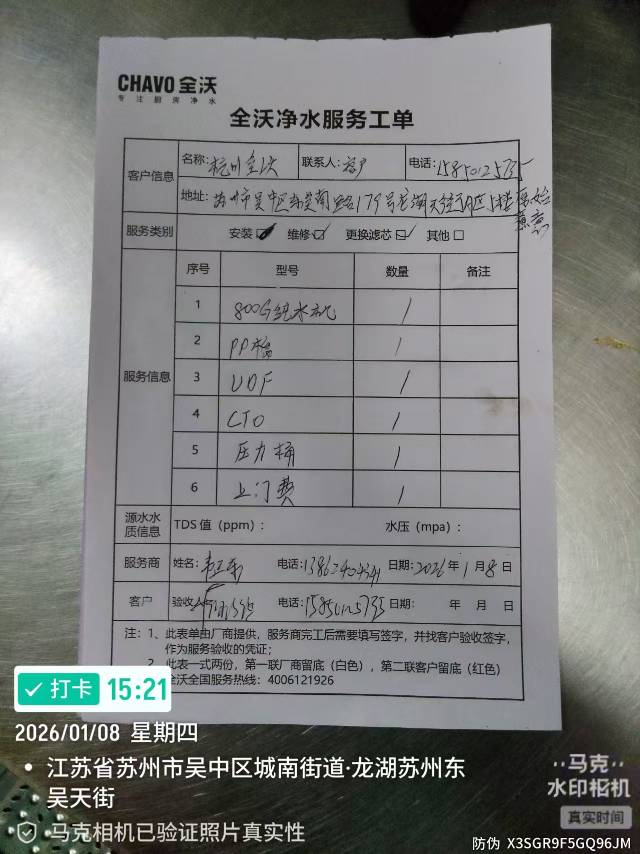 CHAVO 全沃
专注厨房净水
全沃净水服务工单
客户信息
名称: 杭州全沃 联系人: 客户 电话: 15850125735
地址: 苏州市吴中区 南路179号龙湖天街 区5楼
服务类别 安装☑ 维修☑ 更换滤芯☑ 其他☐
服务信息
序号 型号 数量 备注
1 800G纯水机 1
2 PP棉 1
3 UDF 1
4 CTO 1
5 压力桶 1
6 上门费 1
源水水质信息 TDS 值 (ppm): 水压 (mpa):
服务商 姓名: 电话: 日期: 2026年1月8日
客户 验收人 电话: 15850125735 日期: 年 月 日
注: 1、此表单由厂商提供, 服务商完工后需要填写签字, 并找客户验收签字,
作为服务验收的凭证;
2、此表一式两份, 第一联厂商留底 (白色), 第二联客户留底 (红色)
全沃全国服务热线: 4006121926
打卡 15:21
2026/01/08 星期四
江苏省苏州市吴中区城南街道·龙湖苏州东
吴天街
马克相机已验证照片真实性
马克
水印相机
真实时间
防伪 X3SGR9F5GQ96JM